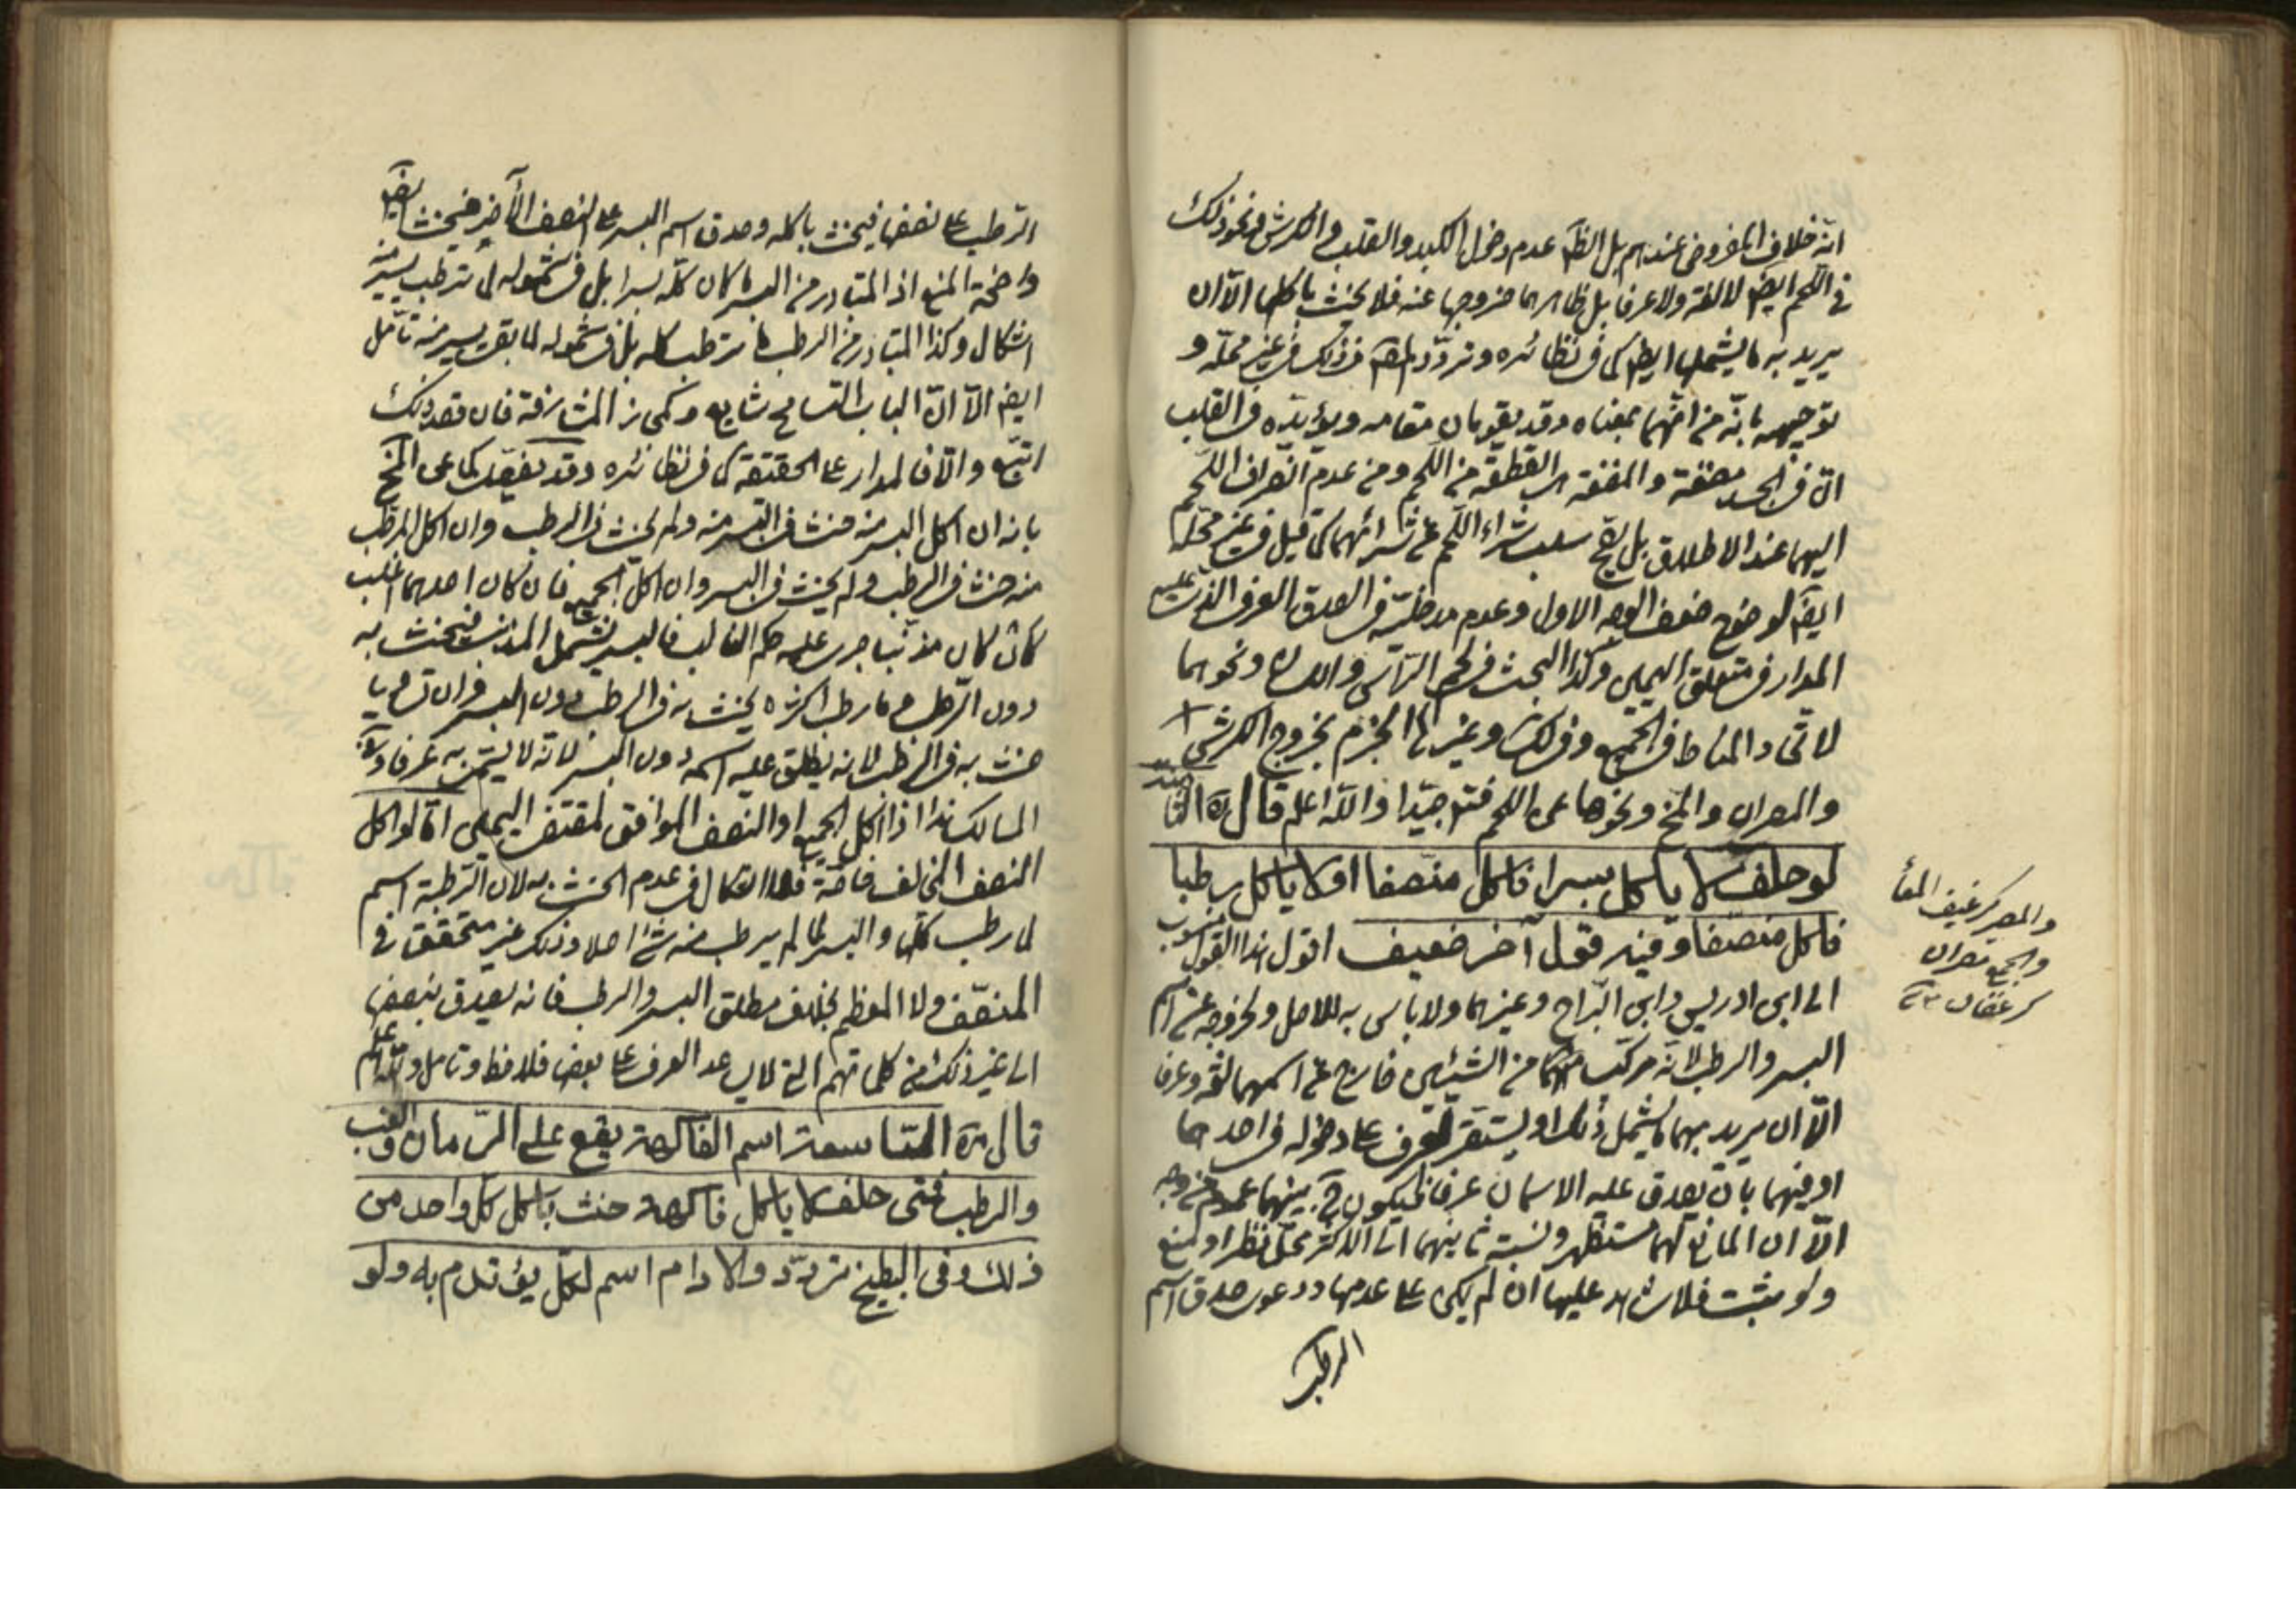 انه خلاف المفروض عندهم بل الظ عدم دخول الكبد والقلب والكرش ونحو ذلك
في اللحم ايضا لا لغة ولا عرفا بل ظاهرهما خروجها عنه فلا يحنث باكلها الا ان
يريد به ما يشملها ايضا كما في نظائره وتردد المص في ذلك في غير محله و
توجيهه بانه من انهما بمعناه وقد يقومان مقامه ويؤيده في القلب
ان في الجسد مضغة والمضغة هي القطعة من اللحم ومن عدم انصراف اللحم
اليهما عند الاطلاق بل يصح سلب شراء اللحم عن شرائهما كما قيل في غير محله
ايضا لوضوح ضعف الوجه الاول وعدم مدخليته في الصدق العرفي الذي عليه
المدار في متعلق اليمين وكذا البحث في لحم الراس واللسان ونحوهما
لاتحاد المناط في الجميع وفي لك وغيرها الجزم بخروج الكرش
والمصران والمخ ونحوها عن اللحم فتدبر جيدا والله اعلم قال ره الثامنة
لو حلف لا ياكل بسرا فاكل منصفا او لا ياكل رطبا
فاكل منصفا وفيه قول آخر ضعيف اقول هذا القول منسوب
الى ابن ادريس وابن البراج وغيرهما ولا باس به للاصل ولخروجه عن اسم
البسر والرطب لانه مركب من الشيئين خارج عن اسمهما لغة وعرفا
الا ان يريد بهما ما يشمل ذلك او يستقر العرف على دخوله في احدهما
او فيهما بان يصدق عليه الاسمان عرفا فيكون ح بينهما عموم من وجه
الا ان المانع لهما مستظهر ونسبة ثانيهما الى الاكثر محل نظر او منع
ولو ثبت فلا شاهد عليها ان لم يكن على عدمها ودعوى صدق اسم
الرطب
والمصير كرغيف المعا
والجمع مصران
كرغفان
الرطب على نصفها فيحنث باكله وصدق اسم البسر على النصف الآخر فيحنث ايضا
واضحة المنع اذ المتبادر من البسر ما كان كله بسرا بل في شموله لما ترطب يسير منه
اشكال وكذا المتبادر من الرطب ما ترطب كله بل في شموله لما بقى يسير منه تأمل
ايضا الا ان الباب التسامح شايع وكمى ز المشارفة فان قصد ذلك
اتبع والا فالمدار على الحقيقة كما في نظائره وقد يفصل كما عن المخ
بانه ان اكل البسر منه حنث في البسر منه ولم يحنث في الرطب وان اكل الرطب
منه حنث في الرطب ولم يحنث في البسر وان اكل الجميع فان كان احدهما اغلب
كأن كان مذنبا جرى عليه حكم الغالب فالبسر يشمل المذنب فيحنث به
دون الرطب وما رطب اكثره يحنث به في الرطب دون البسر وان تساويا
حنث به في الرطب لانه يطلق عليه اسمه دون البسر لانه لا يسمى به عرفا وفي
المسالك هذا اذا اكل الجميع او النصف الموافق لمقتضى اليمين اما لو اكل
النصف المخالف خاصة فلا اشكال في عدم الحنث به لان الرطبة اسم
لما رطب كلها والبسر لما لم يرطب منه شئ اصلا وذلك غير متحقق في
المنصف ولا المعظم بخلاف مطلق البسر والرطب فانه يصدق ببعض
الى غير ذلك من كلماتهم التي لا يساعد العرف على بعض فلاحظ وتامل والله اعلم
قال ره التاسعة اسم الفاكهة يقع على الرمان والعنب
والرطب فمتى حلف لا ياكل فاكهة حنث باكل كل واحد من
ذلك وفى البطيخ تردد والادام اسم لكل يؤتدم به ولو